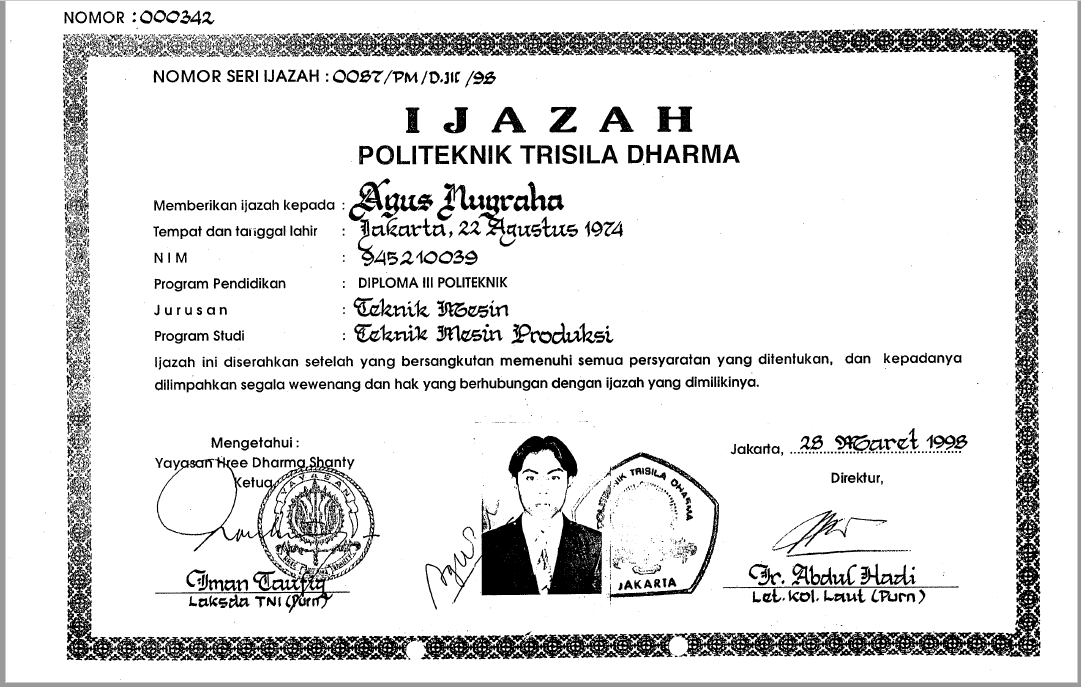 NOMOR : 000342
NOMOR SERI IJAZAH : 0087/PM/D.III/98
IJAZAH
POLITEKNIK TRISILA DHARMA
Memberikan ijazah kepada : Agus Nugraha
Tempat dan tanggal lahir : Jakarta, 22 Agustus 1974
NIM : 945210039
Program Pendidikan : DIPLOMA III POLITEKNIK
Jurusan : Teknik Mesin
Program Studi : Teknik Mesin Produksi
Ijazah ini diserahkan setelah yang bersangkutan memenuhi semua persyaratan yang ditentukan, dan kepadanya
dilimpahkan segala wewenang dan hak yang berhubungan dengan ijazah yang dimilikinya.
Mengetahui :
Yayasan Hree Dharma Shanty
Ketua,
YAYASAN
Iman Taufiq
Laksda TNI (Purn)
Agus
TRISILA DHARMA
JAKARTA
Jakarta, 28 Maret 1998
Direktur,
Ir. Abdul Hadi
Let. Kol. Laut (Purn)